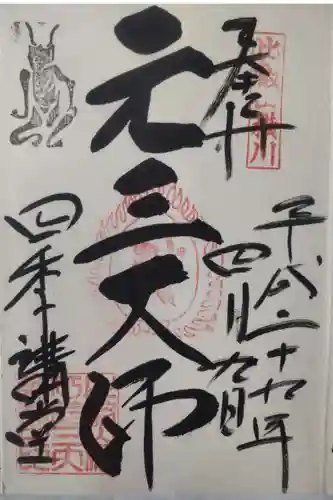 奉拝
平成二十九年
四月九日
元三大師
四季講堂
比叡山横川